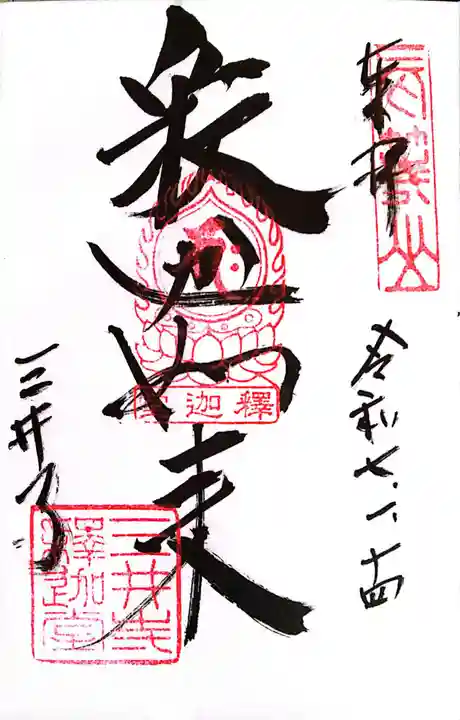 奉拝
長等山
令和七.六.十四
釈迦如来
釋迦堂
三井寺
三井寺
釋迦堂